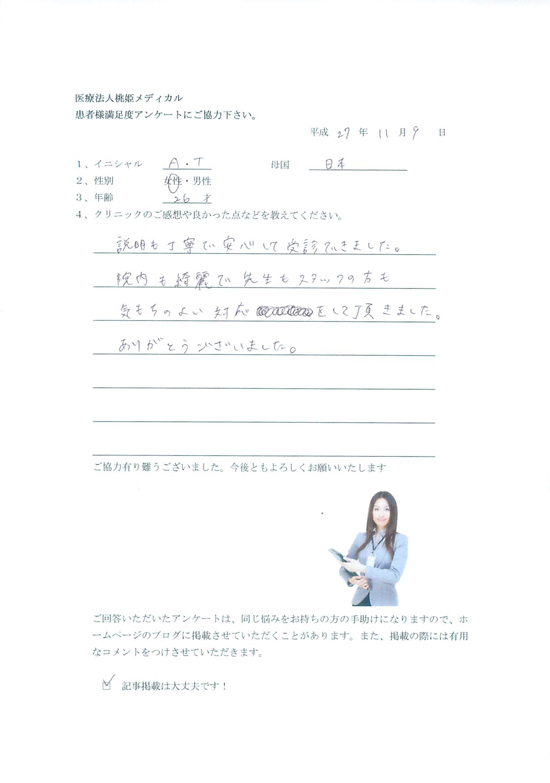 医療法人桃姫メディカル
患者様満足度アンケートにご協力下さい。
平成 27 年 11 月 9 日
1、イニシャル A・T 母国 日本
2、性別 女性・男性
3、年齢 26 才
4、クリニックのご感想や良かった点などを教えてください。
説明も丁寧で安心して受診できました。
院内も綺麗で先生もスタッフの方も
気もちのよい対応をして頂きました。
ありがとうございました。
ご協力有り難うございました。今後ともよろしくお願いいたします
ご回答いただいたアンケートは、同じ悩みをお持ちの方の手助けになりますので、ホ
ームページのブログに掲載させていただくことがあります。また、掲載の際には有用
なコメントをつけさせていただきます。
記事掲載は大丈夫です！